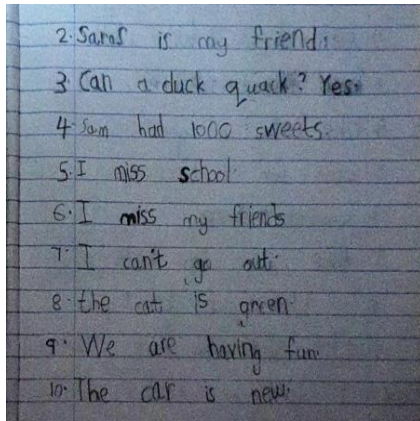 2. Saras is my friend.
3 Can a duck quack? Yes.
4. Sam had 1000 sweets.
5. I miss school.
6. I miss my friends
7. I can't go out.
8. the cat is green.
9. We are having fun.
10. The car is new.